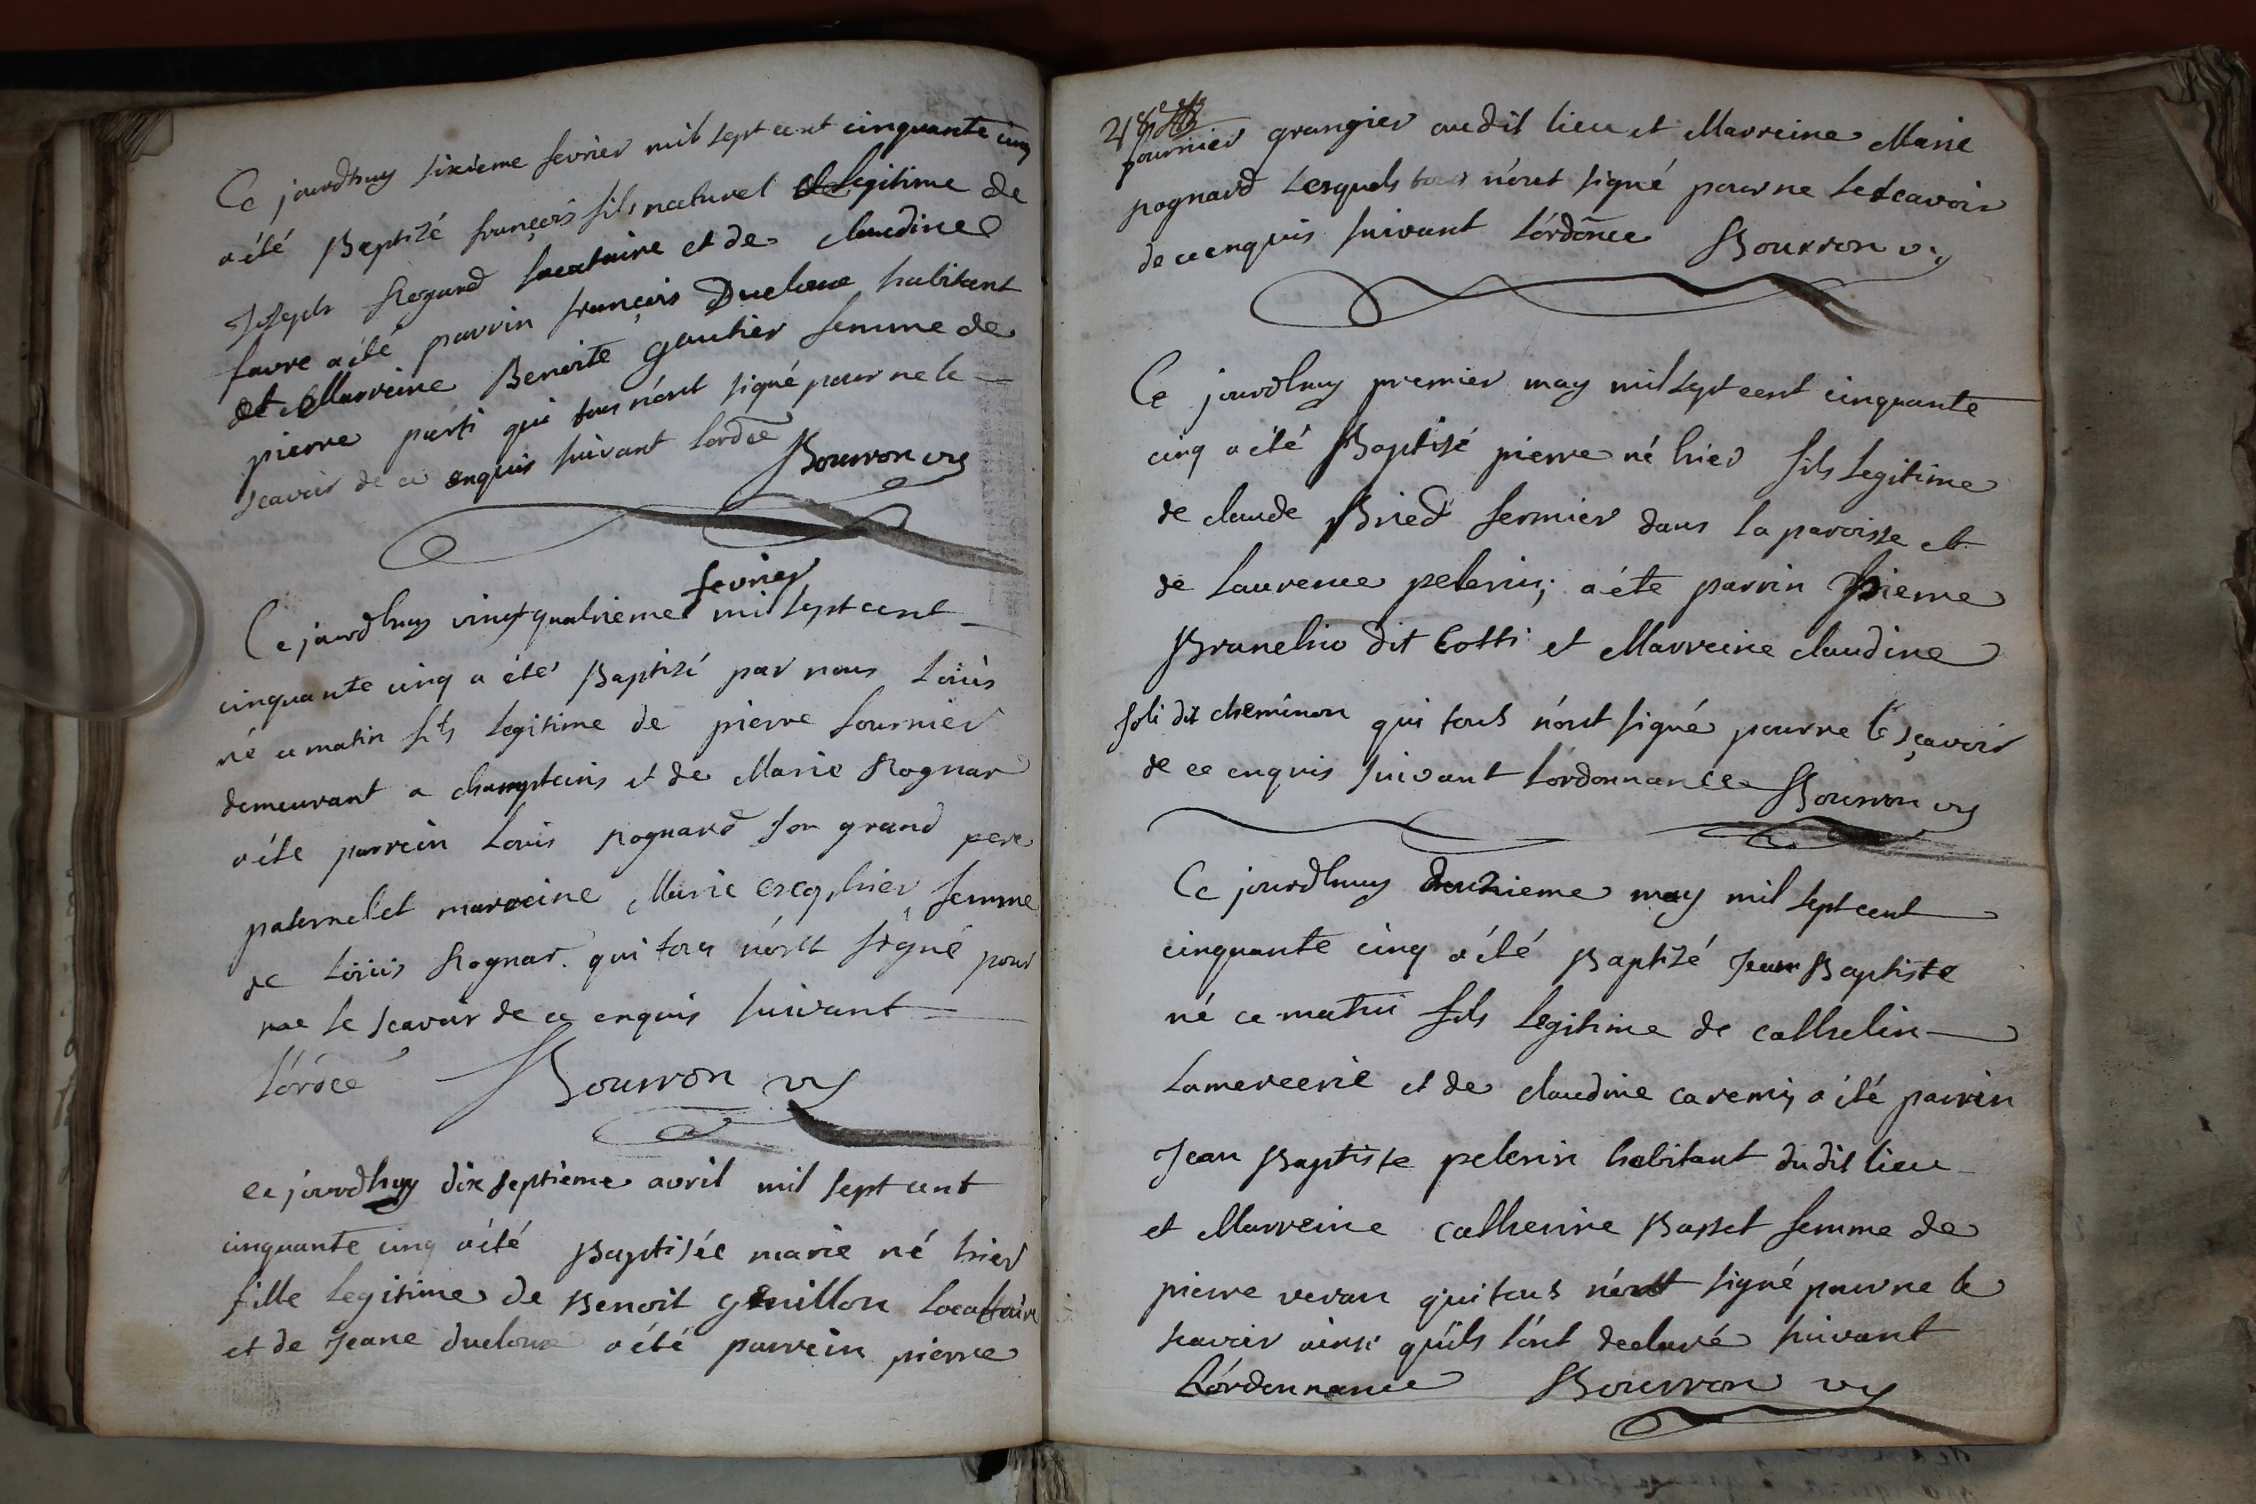 Ce jourdhuy sixieme fevrier mil sept cent cinquante cinq
a été Baptizé françois fils naturel et legitime de
Joseph Rogard locataire et de claudine
favre a été parrin françois Ducloux habitant
et Marreine Benoite gautier femme de
pierre parti qui tous n'ont signé pour ne le
scavoir de ce enquis suivant lordce Bourron vic
Ce jourdhuy vingt quatrieme fevrier mil sept cent
cinquante cinq a été Baptizé par nous Loüis
né ce matin fils legitime de pierre fournier
demeurant a champteins et de Marie Rognar
a été parrein Louis Rognard son grand pere
paternel et marreine Marie escophier femme
de Loüis Rognar qui tous n'ont signé pour
ne le scavoir de ce enquis suivant
L'ordce Bourron vic
ce jourdhuy dix septieme avril mil sept cent
cinquante cinq a été Baptisée marie né hier
fille legitime de Benoit genillon Locattaire
et de Jeane ducloux a été parrein pierre
fournier grangier audit lieu et Marreine Marie
rognard Lesquels tous n'ont signé pour ne le scavoir
de ce enquis suivant L'ordonce Bourron vic
Ce jourdhuy premier may mil sept cent cinquante
cinq a été Baptizé pierre né hier fils legitime
de claude Bried fermier dans la paroisse et
de Laurence pelerin; a été parrin Pierre
Brunelrio dit Cotti et Marreine claudine
Joli dit cheminon qui tous n'ont signé pour ne le sçavoir
de ce enquis suivant L'ordonnance Bourron vic
Ce jourdhuy deuxieme may mil sept cent
cinquante cinq a été Baptizé Jean Baptiste
né ce matin fils legitime de cathelin
Lamercerie et de claudine caremi, a été parrin
Jean Baptiste pelerin habitant dudit lieu
et Marreine catherine Basset femme de
pierre veran qui tous n'ont signé pour ne le
scavoir ainsi qu'ils l'ont declaré suivant
L'ordonnance Bourron vic